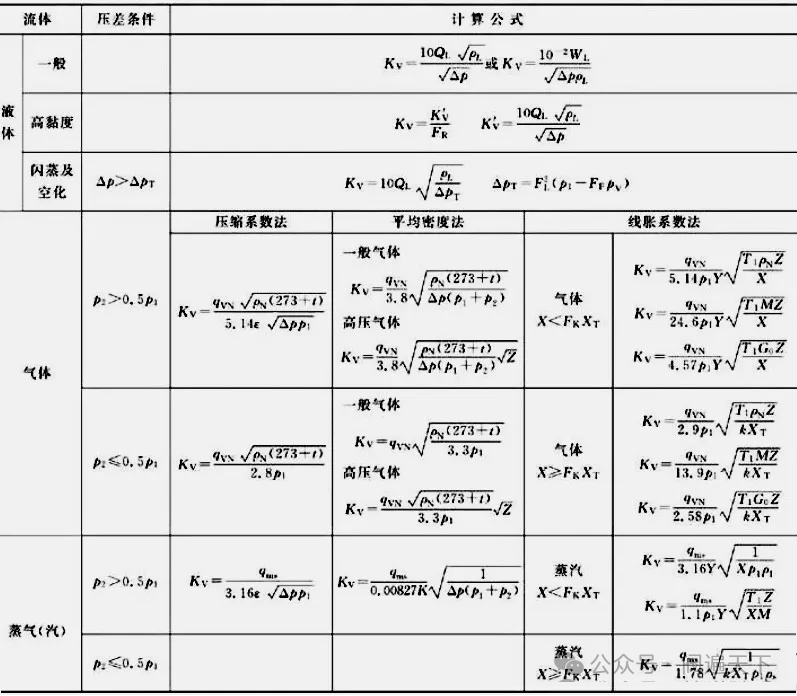 流体 压差条件 计算公式
液体
一般 K_V=\frac{10Q_L\sqrt{ρ_L}}{\sqrt{Δp}}或K_V=\frac{10^{-2}W_L}{\sqrt{Δpρ_L}}
高黏度 K_V=\frac{K'_V}{F_R} K'_V=\frac{10Q_L\sqrt{ρ_L}}{\sqrt{Δp}}
闪蒸及空化 Δp>Δp_T K_V=10Q_L\sqrt{\frac{ρ_L}{Δp_T}} Δp_T=F_L^2(p_1-F_Fp_V)
压缩系数法 平均密度法 线胀系数法
气体
p_2>0.5p_1
K_V=\frac{q_{VN}\sqrt{ρ_N(273+t)}}{5.14ε\sqrt{Δpp_1}}
一般气体
K_V=\frac{q_{VN}}{3.8}\sqrt{\frac{ρ_N(273+t)}{Δp(p_1+p_2)}}
高压气体
K_V=\frac{q_{VN}}{3.8}\sqrt{\frac{ρ_N(273+t)}{Δp(p_1+p_2)}\sqrt{Z}}
气体
X<F_KX_T
K_V=\frac{q_{VN}}{5.14p_1Y}\sqrt{\frac{T_1ρ_NZ}{X}}
K_V=\frac{q_{VN}}{24.6p_1Y}\sqrt{\frac{T_1MZ}{X}}
K_V=\frac{q_{VN}}{4.57p_1Y}\sqrt{\frac{T_1G_0Z}{X}}
p_2≤0.5p_1
K_V=\frac{q_{VN}\sqrt{ρ_N(273+t)}}{2.8p_1}
一般气体
K_V=q_{VN}\sqrt{\frac{ρ_N(273+t)}{3.3p_1}}
高压气体
K_V=\frac{q_{VN}\sqrt{ρ_N(273+t)}}{3.3p_1}\sqrt{Z}
气体
X≥F_KX_T
K_V=\frac{q_{VN}}{2.9p_1}\sqrt{\frac{T_1ρ_NZ}{kX_T}}
K_V=\frac{q_{VN}}{13.9p_1}\sqrt{\frac{T_1MZ}{kX_T}}
K_V=\frac{q_{VN}}{2.58p_1}\sqrt{\frac{T_1G_0Z}{kX_T}}
蒸气(汽)
p_2>0.5p_1
K_V=\frac{q_{ms}}{3.16ε\sqrt{Δpp_1}}
K_V=\frac{q_{ms}}{0.00827K}\sqrt{\frac{1}{Δp(p_1+p_2)}}
蒸汽
X<F_KX_T
K_V=\frac{q_{ms}}{3.16Y}\sqrt{\frac{1}{Xp_1ρ_1}}
K_V=\frac{q_{ms}}{1.1p_1Y}\sqrt{\frac{T_1Z}{XM}}
p_2≤0.5p_1
蒸汽
X≥F_KX_T
K_V=\frac{q_{ms}}{1.78}\sqrt{\frac{1}{kX_Tp_1ρ_s}}
公众号·阀遍天下